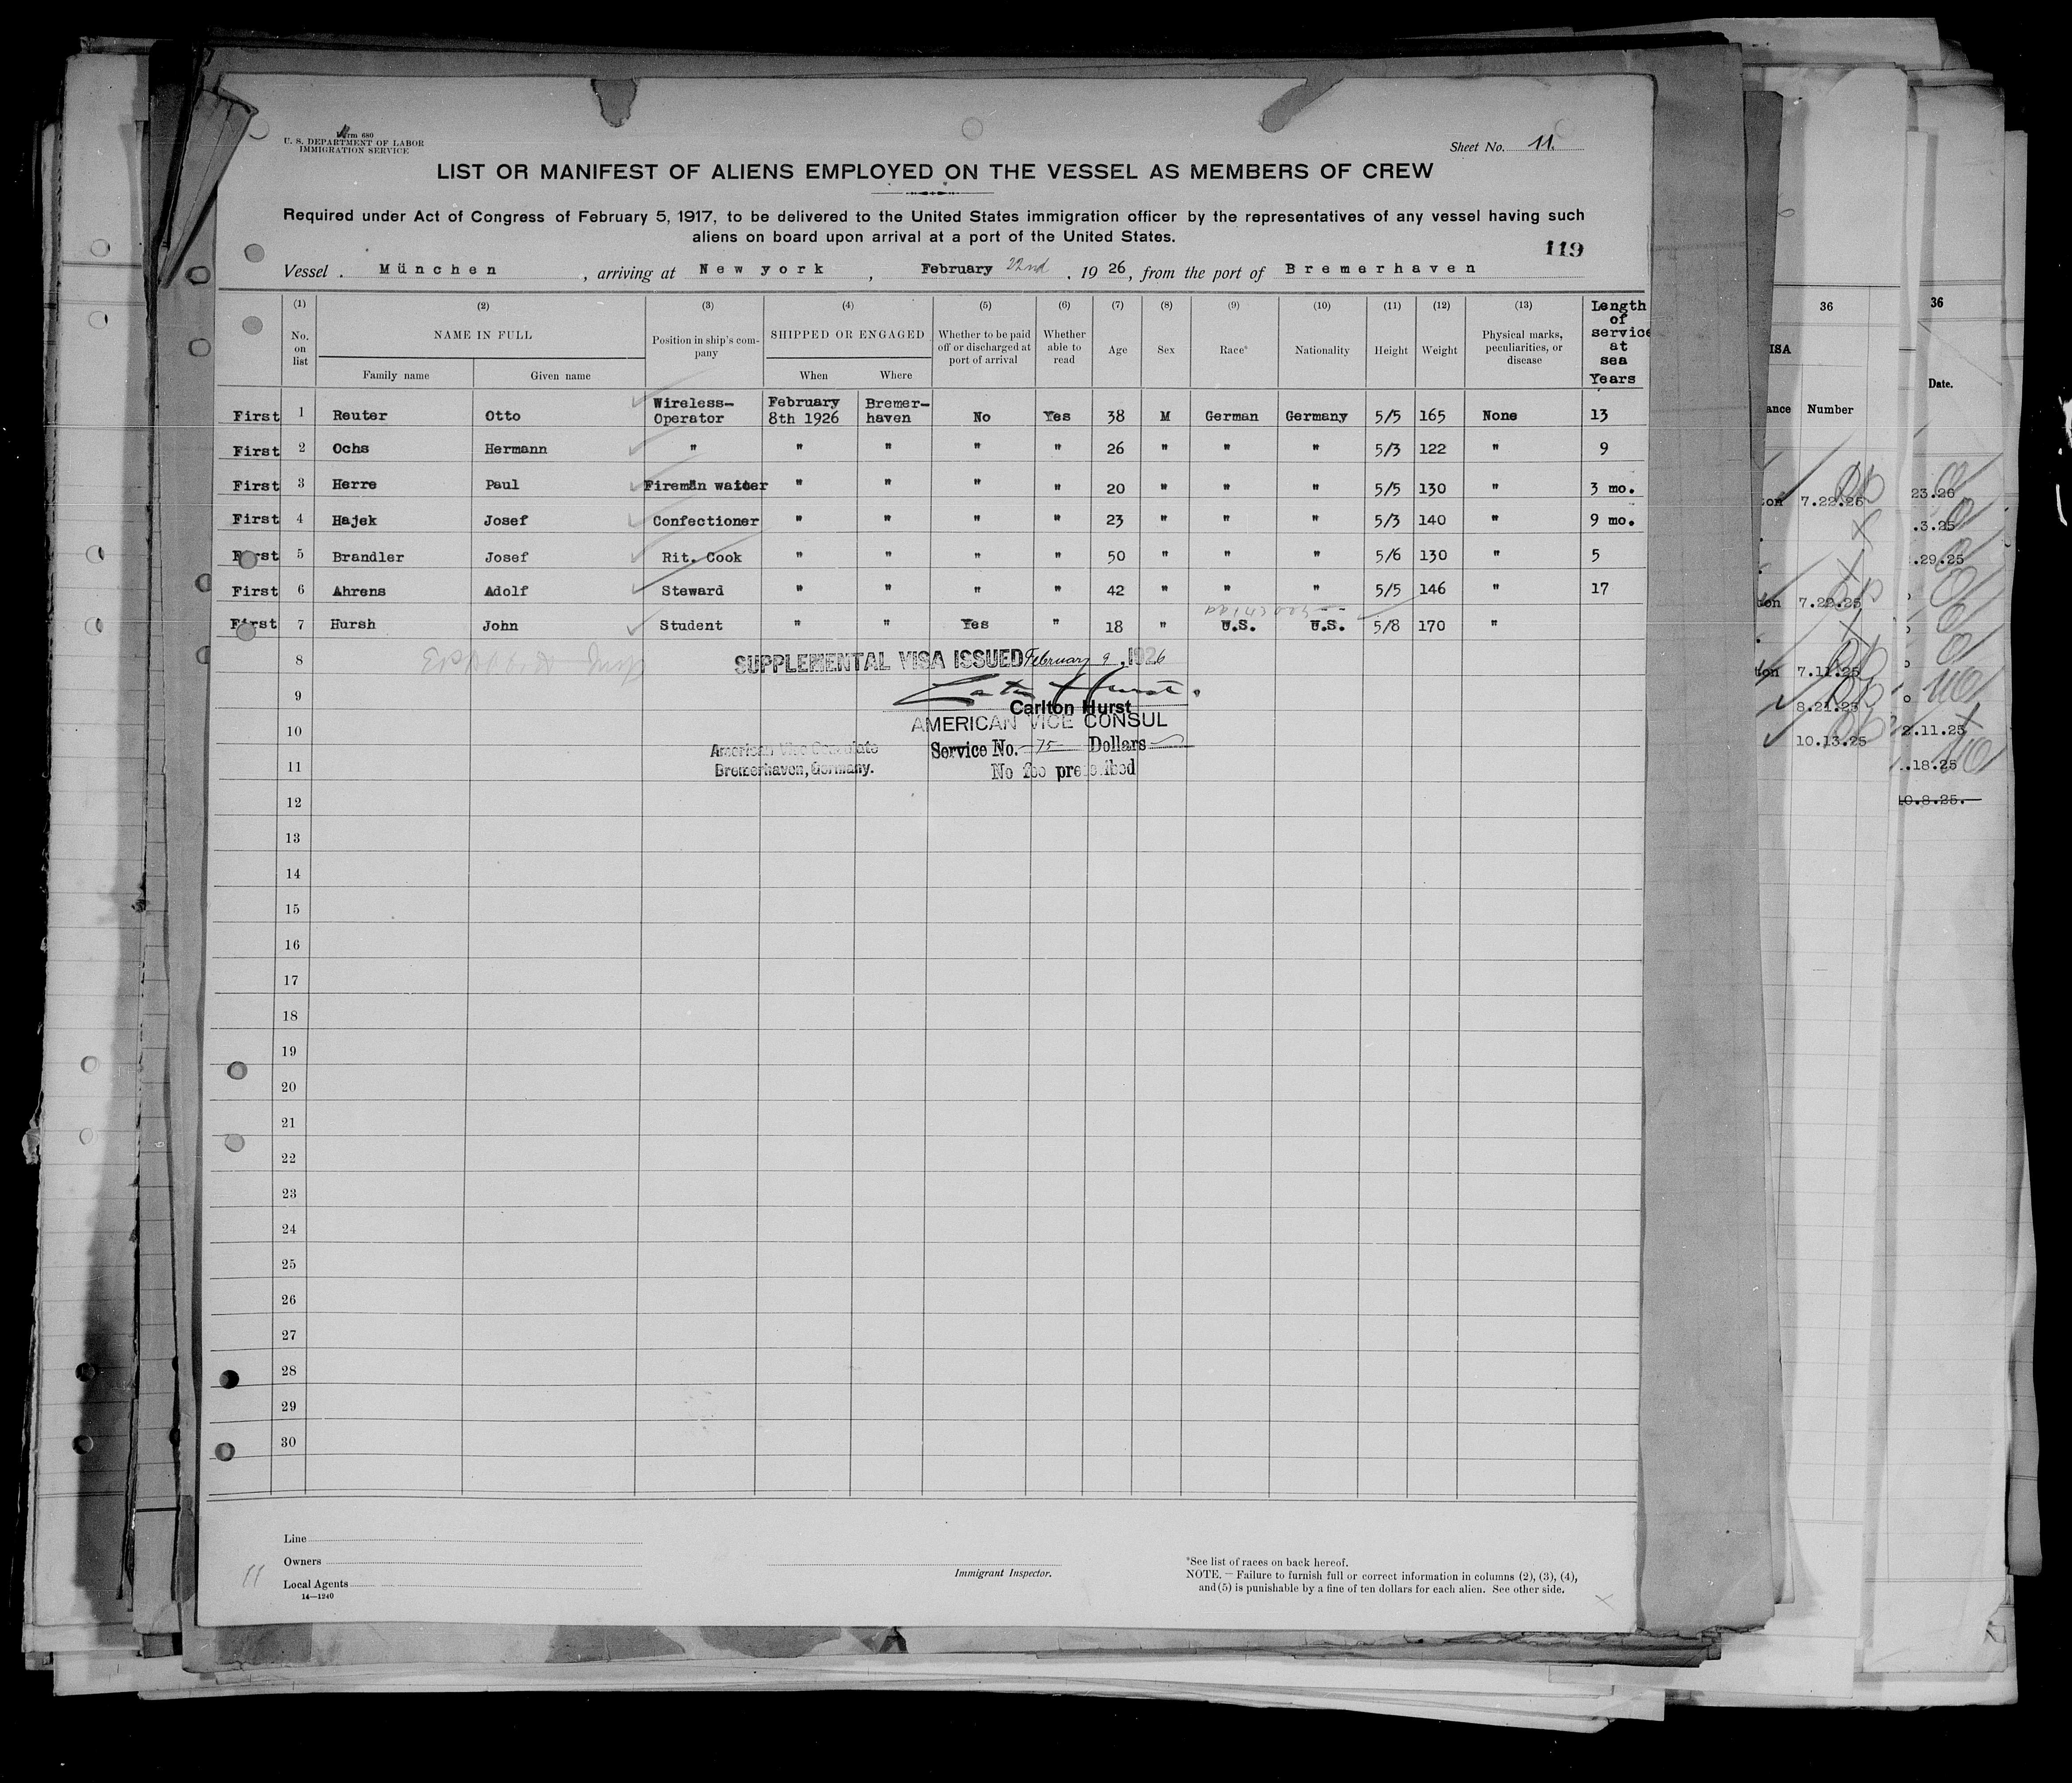 Form 680
U. S. DEPARTMENT OF LABOR
IMMIGRATION SERVICE
Sheet No. 11.
LIST OR MANIFEST OF ALIENS EMPLOYED ON THE VESSEL AS MEMBERS OF CREW
Required under Act of Congress of February 5, 1917, to be delivered to the United States immigration officer by the representatives of any vessel having such
aliens on board upon arrival at a port of the United States.
119
Vessel München, arriving at New york, February 22nd, 1926, from the port of Bremerhaven
(1) (2) (3) (4) (5) (6) (7) (8) (9) (10) (11) (12) (13)
No. on list
NAME IN FULL
Family name Given name
Position in ship's company
SHIPPED OR ENGAGED
When Where
Whether to be paid off or discharged at port of arrival
Whether able to read
Age
Sex
Race*
Nationality
Height
Weight
Physical marks, peculiarities, or disease
Length of service at sea Years
First 1 Reuter Otto Wireless-Operator February 8th 1926 Bremer-haven No Yes 38 M German Germany 5/5 165 None 13
First 2 Ochs Hermann " " " " " 26 " " " 5/3 122 " 9
First 3 Herre Paul Fireman waiter " " " " 20 " " " 5/5 130 " 3 mo.
First 4 Hajek Josef Confectioner " " " " 23 " " " 5/3 140 " 9 mo.
First 5 Brandler Josef Rit. Cook " " " " 50 " " " 5/6 130 " 5
First 6 Ahrens Adolf Steward " " " " 42 " " " 5/5 146 " 17
First 7 Hursh John Student " " Yes " 18 " U.S. U.S. 5/8 170 "
8
SUPPLEMENTAL VISA ISSUED February 9, 1926
9
Carlton Hurst
AMERICAN VICE CONSUL
10
American Vice Consulate
Service No. 75 Dollars
Bremerhaven, Germany.
No fee prescribed
11
12
13
14
15
16
17
18
19
20
21
22
23
24
25
26
27
28
29
30
Line
Owners
Local Agents
14—1240
11
Immigrant Inspector.
*See list of races on back hereof.
NOTE. — Failure to furnish full or correct information in columns (2), (3), (4),
and (5) is punishable by a fine of ten dollars for each alien. See other side.
36
ISA
Number
7.22.25
7.22.25
7.11.25
8.21.25
10.13.25
36
Date.
23.26
.3.25
.29.25
2.11.25
.18.25
10.8.25.